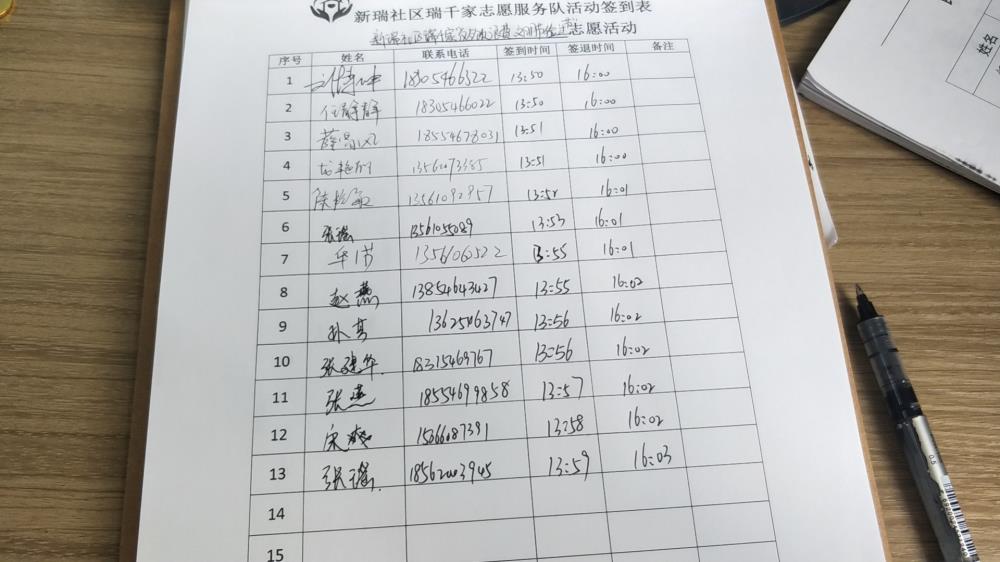 新瑞社区瑞千家志愿服务队活动签到表
新瑞社区 志愿活动
序号 姓名 联系电话 签到时间 签退时间 备注
1 18305466522 13:50 16:00
2 任静静 18305466022 13:50 16:00
3 18554678031 13:51 16:00
4 13561073385 13:51 16:00
5 13561092957 13:52 16:01
6 张瑞 13561055089 13:53 16:01
7 华节 1356060522 13:55 16:01
8 赵燕 13854643427 13:55 16:02
9 孙真 13625463747 13:56 16:02
10 张建华 18315469767 13:56 16:02
11 张燕 18554699858 13:57 16:02
12 宋爽 15066087391 13:58 16:02
13 张瑞 18562003945 13:59 16:03
14
15
姓名
0.5